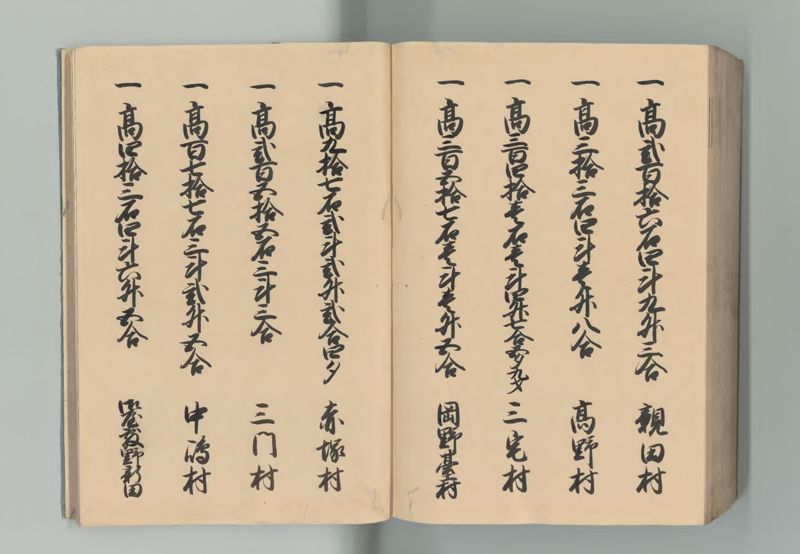 一 高弐百拾六石四斗九升三合 親田村
一 高三拾三石四斗壱升八合 高野村
一 高三百四拾壱石壱斗四升七合五夕九才 三宅村
一 高三百五拾七石壱斗壱升五合 岡野臺村
一 高九拾七石弐斗弐升弐合四夕 赤塚村
一 高弐百五拾五石三斗三合 三門村
一 高百七拾七石三斗弐升五合 中嶋村
一 高四拾三石四斗六升五合 野新田